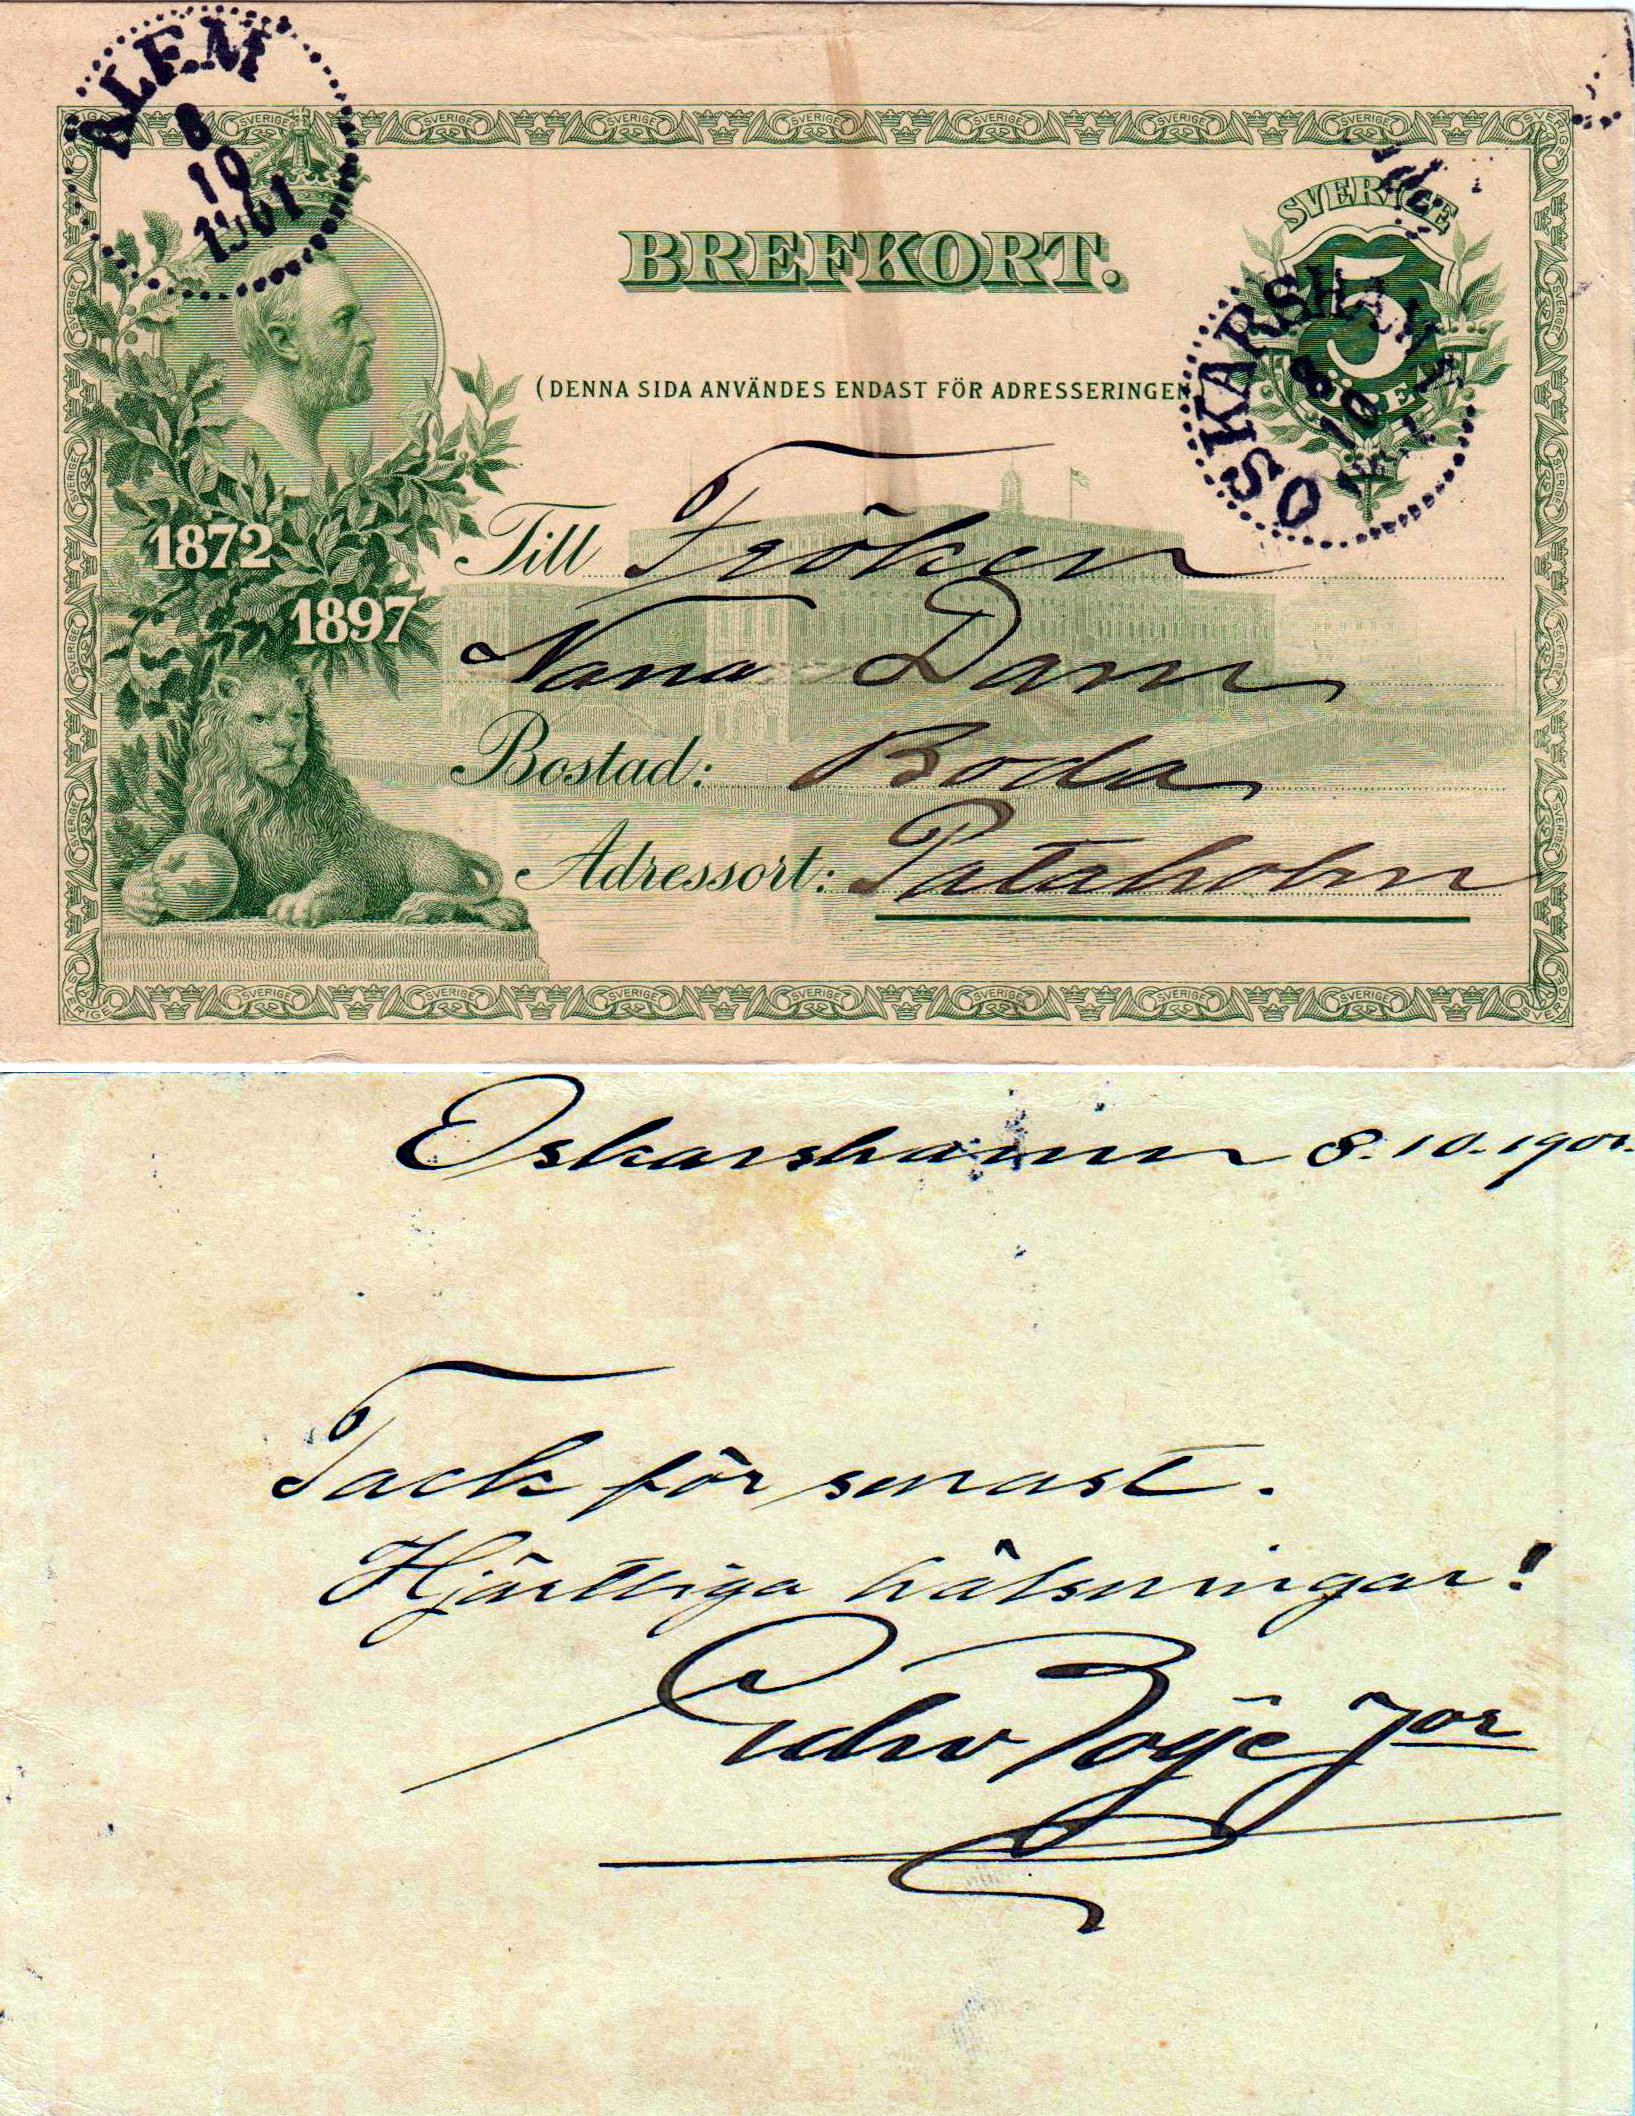 ÅLEM
8
10
1901
BREFKORT.
SVERIGE
5
(DENNA SIDA ANVÄNDES ENDAST FÖR ADRESSERINGEN
OSKARSHAMN
8
10
1872
1897
Till Fröken
Nana Dam
Bostad: Boda
Adressort: Pataholm
Oskarshamn 8.10.1901.
Tack för senast.
Hjärtliga hälsningar!
Boÿe Jor